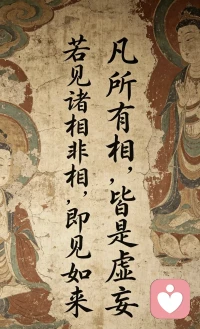 凡所有相，皆是虚妄
若见诸相非相，即见如来